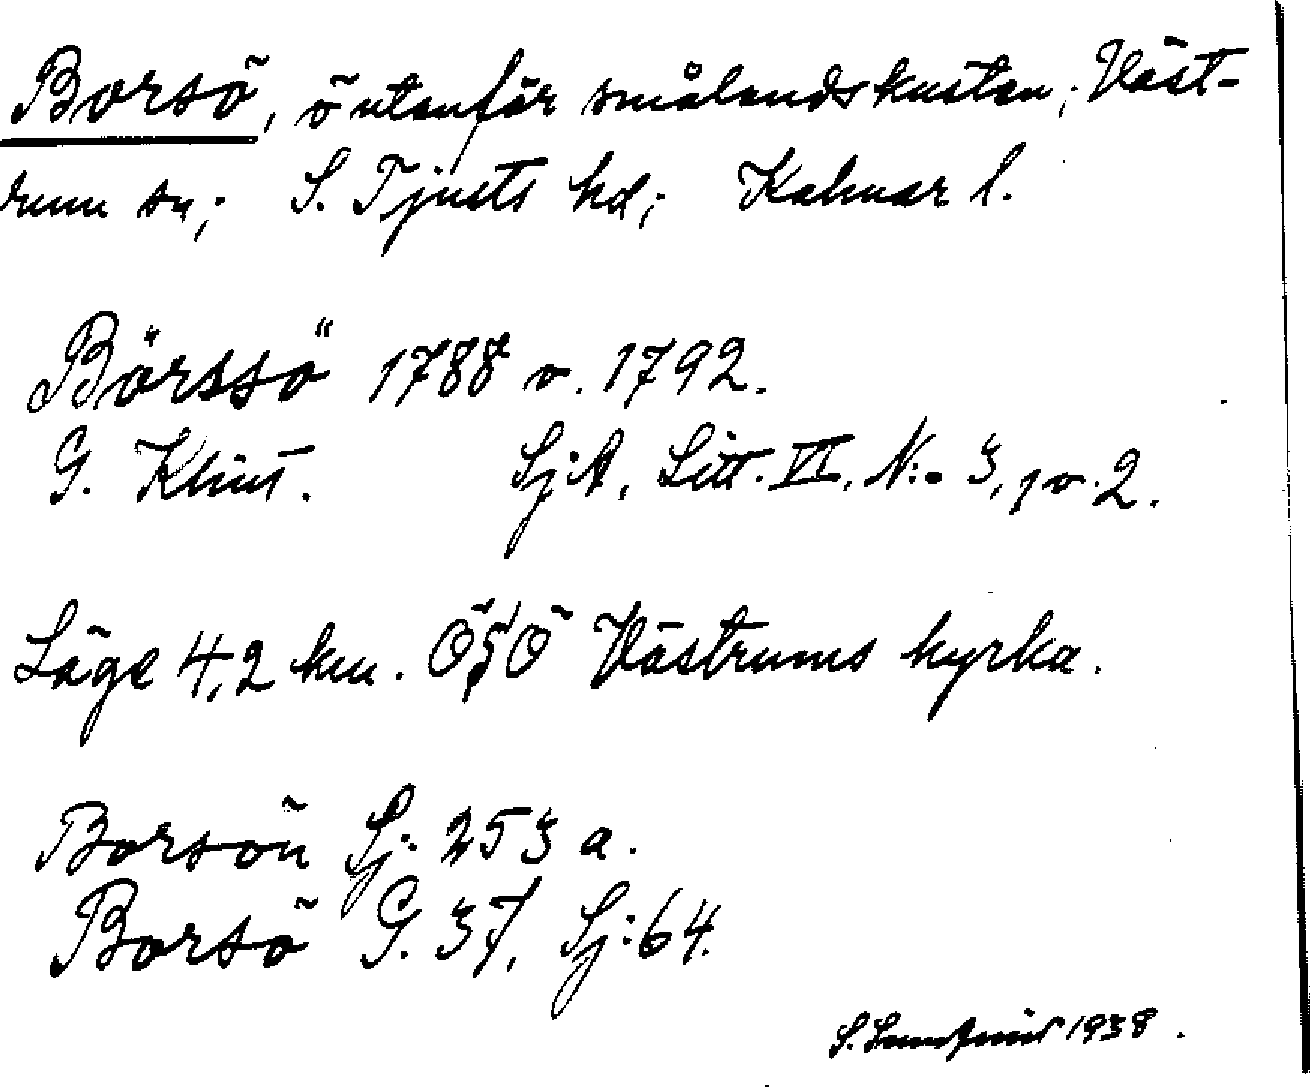 Borsö, ö utanför smålandskusten; Väst-
rum sn; S. Tjusts hd; Kalmar l.
Börssö 1788 o. 1792.
G. Klint. Sj:A, Litt. VI, N:o 3, 1 o. 2.
Läge 4,2 km. ÖSÖ Västrums kyrka.
Borsön Sj: 253 a.
Borsö G. 37, Sj: 64.
S. 1938.